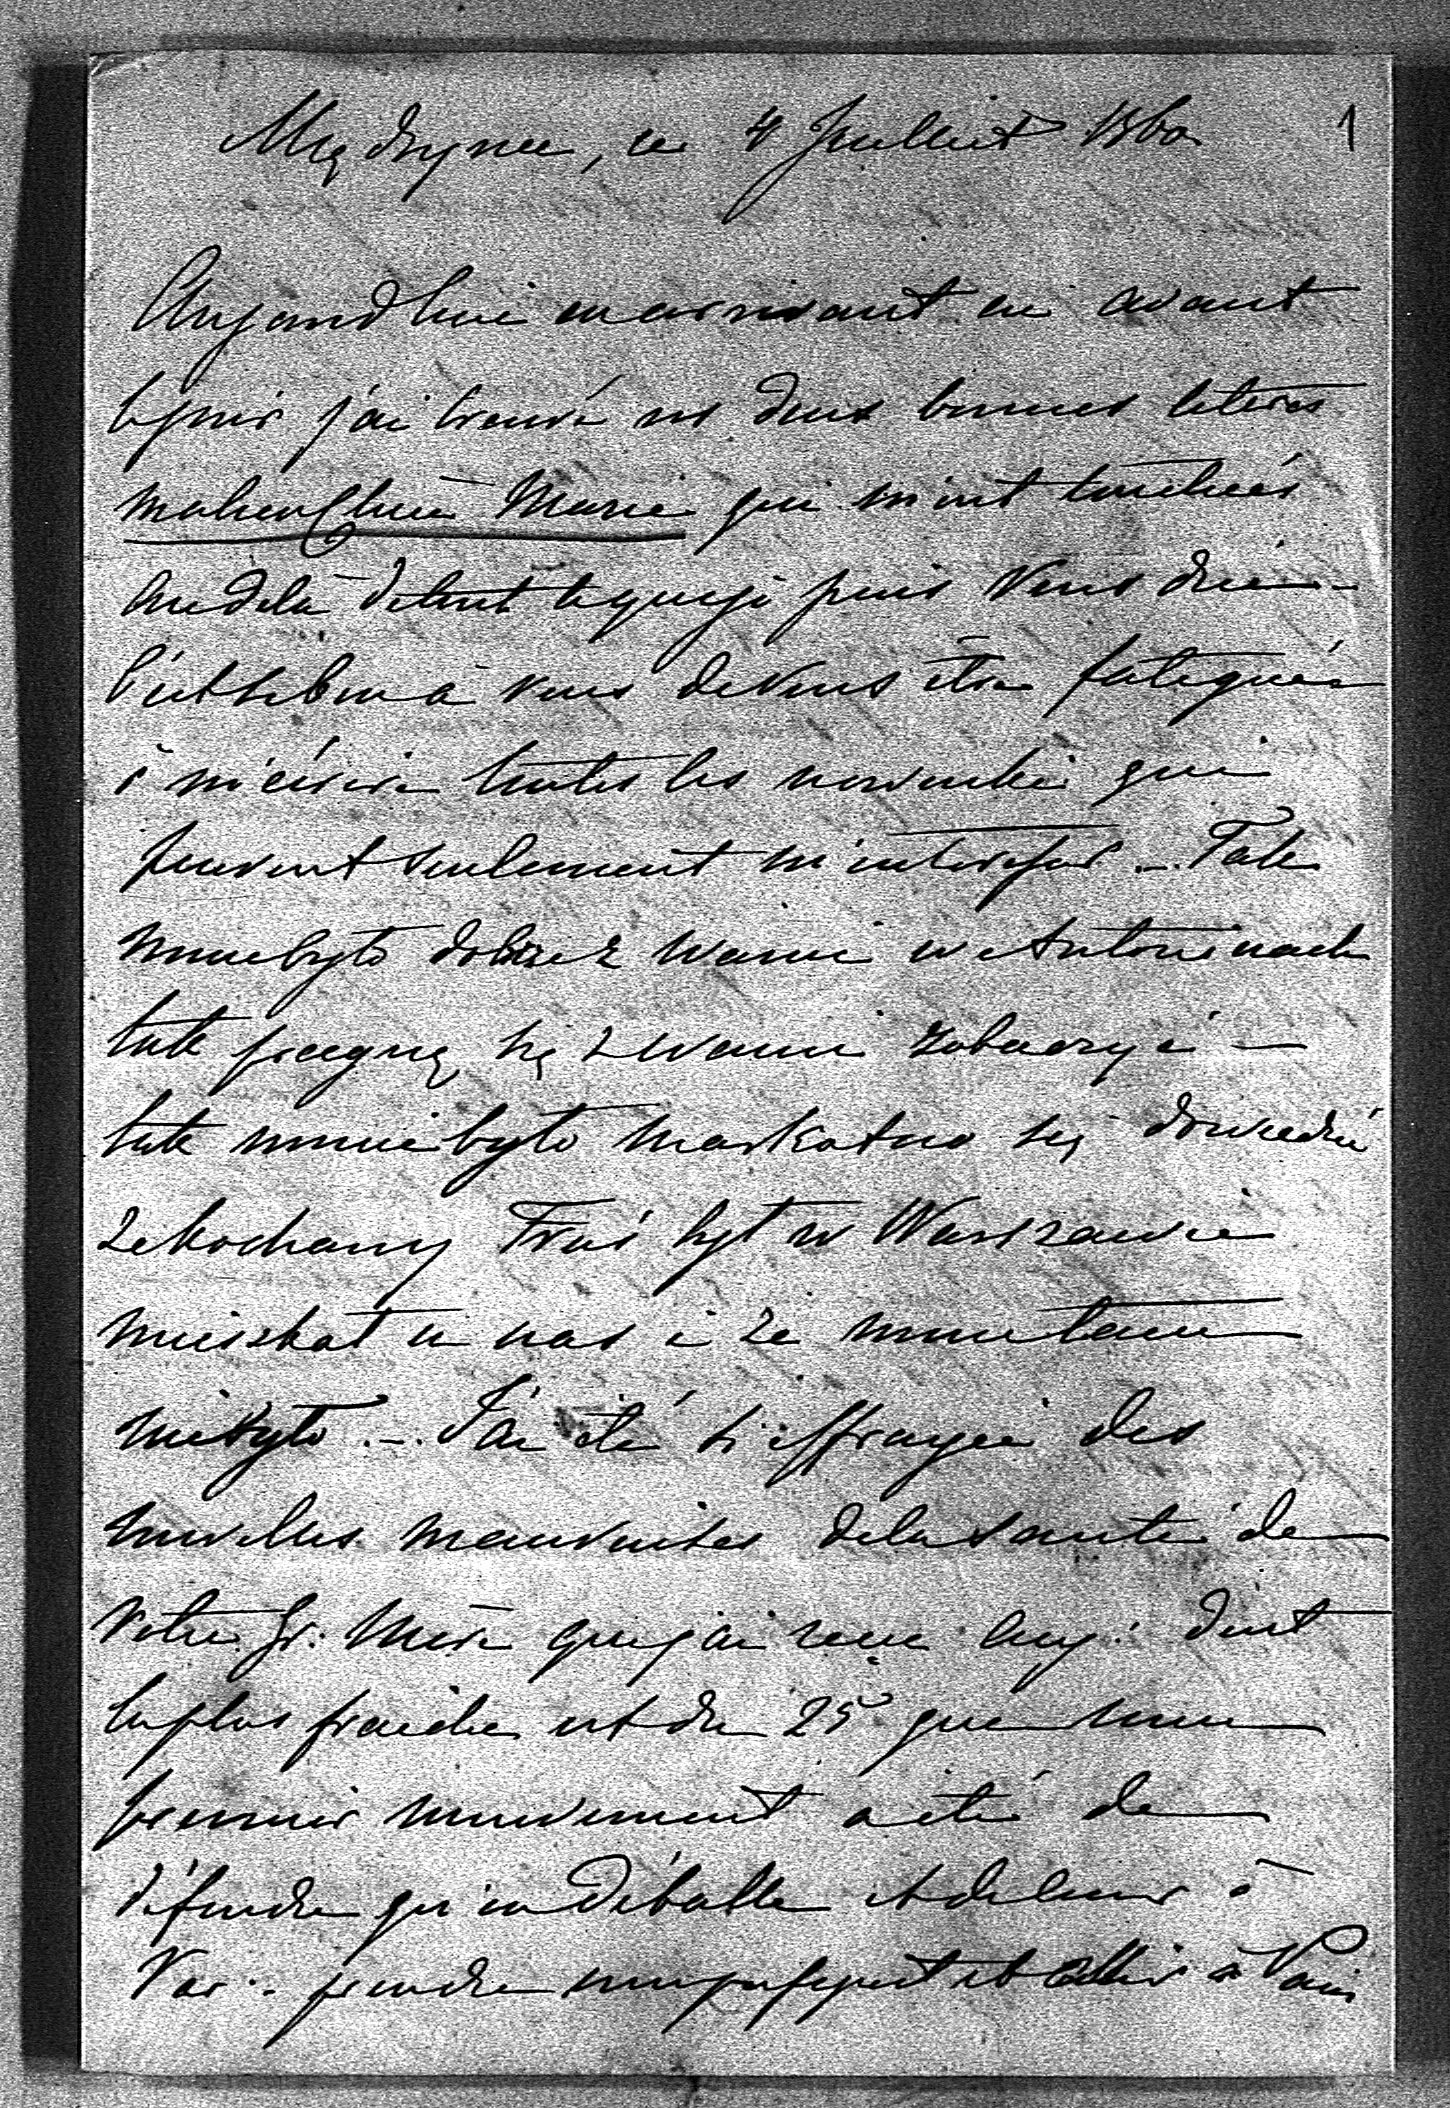 Międzyrzec, ce 4 Juillet 1860 1
Aujourd'hui en arrivant ici avant
le jour j'ai trouvé vos deux bonnes lettres
ma bien Chère Marie qui m'ont touchées
au delà de tout ce que je puis vous dire -
C'est si bon à vous de vous être fatiguée
à m'écrire toutes les nouvelles qui
peuvent seulement m'intéresser. - Tak
mnie było dobrze z Wami w Antoninach
tak pragnę się z wami zobaczyć -
tak mnie było markotno się dowiedzieć
że kochany Fruś był w Warszawie
mieszkał u nas i że mnie tam
nie było. - J'ai été si effrayée des
nouvelles mauvaises de la santé de
Votre Gr: Mère que j'ai reçue auj: dont
la plus fraiche est du 25 que mon
premier mouvement a été de
défendre qu'on déballe et de
Var: prendre mon passeport et aller à Paris